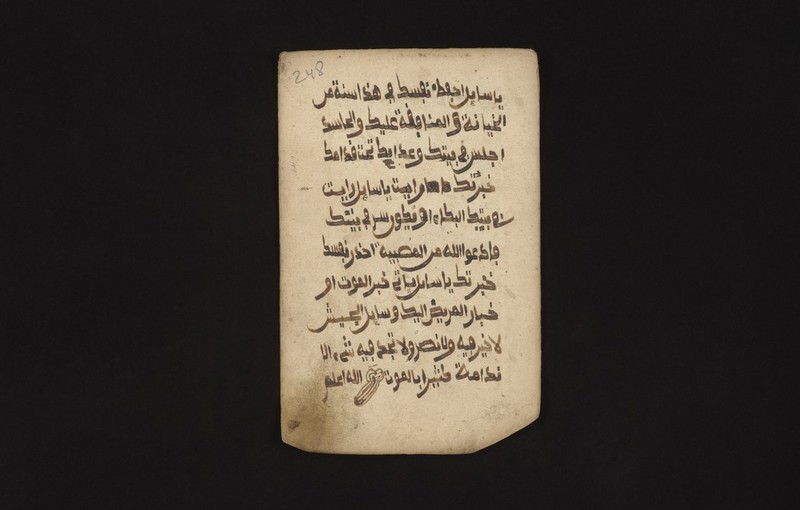 248
يا سايل احفظ نفسك في هذا سنة من
الخيانة والمنافقة عليك والحاسد
اجلس في بيتك وعدايك تحت قدامك
خبرتك رايت يا سايل رايت
في بيتك سر في بيتك
وادعوا الله من المصيبة احذر نفسك
خبرتك يا سايل ياتي خبر الموت او
خبار المريض اليك وسايل الجيش
لا خير فيه ولا نصر ولا تجد فيه شيء الا
ندامة بالموت الله اعلم